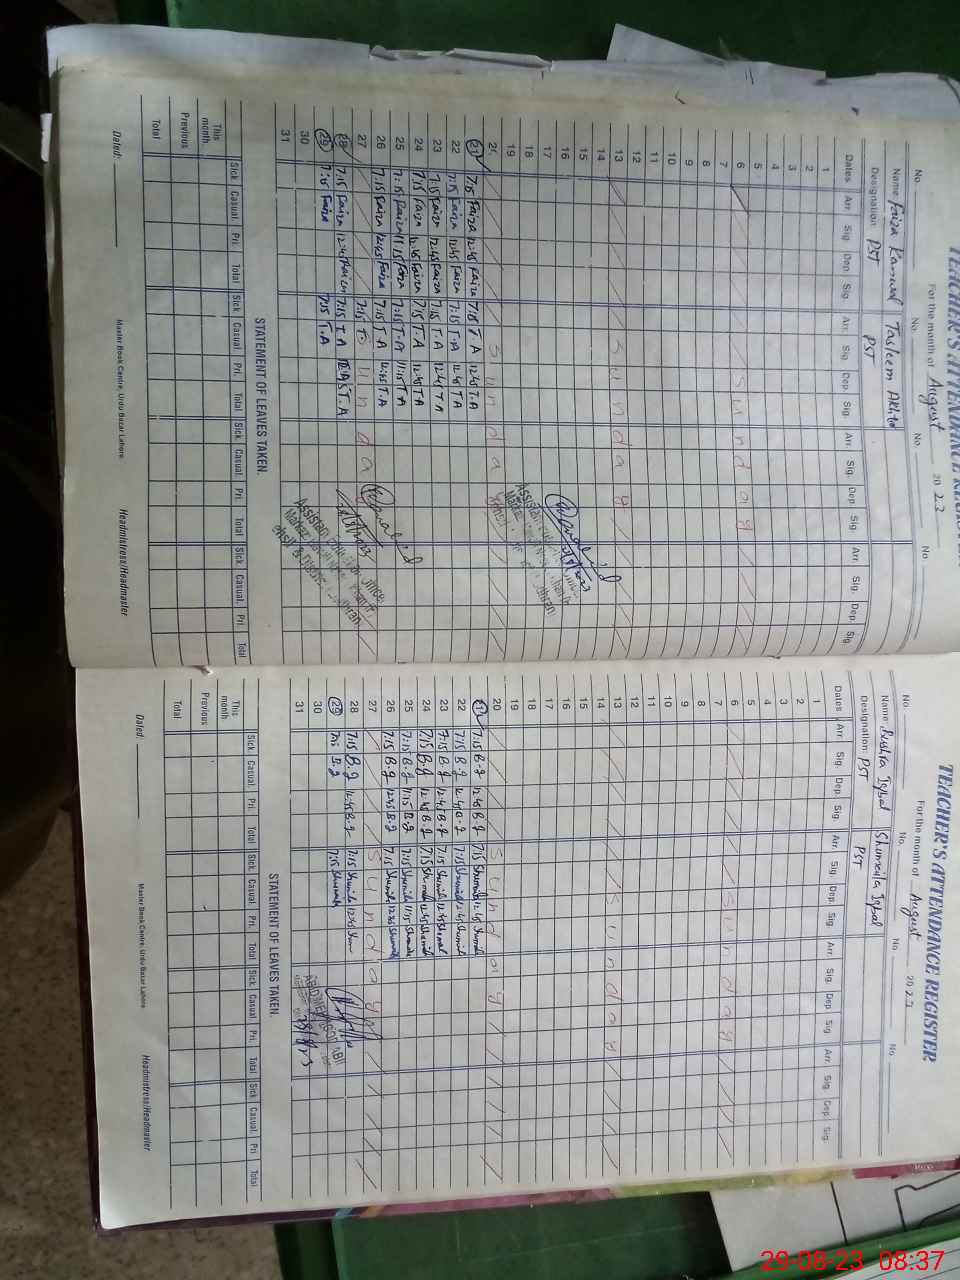 TEACHER'S ATTENDANCE REGISTER
For the month of August 2023
No. No. No. No.
Name Faiza Kanwal Tasleem Akhtar
Designation PST PST
Dates Arr. Sig. Dep. Sig. Arr. Sig. Dep. Sig. Arr. Sig. Dep. Sig. Arr. Sig. Dep. Sig.
1
2
3
4
5
6 Sunday
7
8
9
10
11
12
13 Sunday
14
15
16
17
18
19
20 Sunday
21 7:15 Faiza 12:45 Faiza 7:15 T.A 12:45 T.A
22 7:15 Faiza 12:45 Faiza 7:15 T.A 12:45 T.A
23 7:15 Faiza 12:45 Faiza 7:15 T.A 12:45 T.A
24 7:15 Faiza 12:45 Faiza 7:15 T.A 12:45 T.A
25 7:15 Faiza 11:15 Faiza 7:15 T.A 11:15 T.A
26 7:15 Faiza 12:45 Faiza 7:15 T.A 12:45 T.A
27 Sunday
28 7:15 Faiza 12:45 Faiza 7:15 T.A T.A
29 7:15 Faiza 7:15 T.A
30
31
STATEMENT OF LEAVES TAKEN.
Sick Casual. Pri. Total Sick Casual. Pri. Total Sick Casual. Pri. Total Sick. Casual. Pri. Total
This month.
Previous
Total
Dated: Headmistress/Headmaster
Master Book Centre, Urdu Bazar Lahore.
Assistant Education Officer
TEACHER'S ATTENDANCE REGISTER
For the month of August 2023
No. No. No. No.
Name Bushra Iqbal Shumaila Iqbal
Designation PST PST
Dates Arr. Sig. Dep. Sig. Arr. Sig. Dep. Sig. Arr. Sig. Dep. Sig. Arr. Sig. Dep. Sig.
1
2
3
4
5
6 Sunday
7
8
9
10
11
12
13 Sunday
14
15
16
17
18
19
20 Sunday
21 7:15 B.I 12:45 B.I 7:15 Shumaila 12:45 Shumaila
22 7:15 B.I 12:45 B.I 7:15 Shumaila 12:45 Shumaila
23 7:15 B.I 12:45 B.I 7:15 Shumaila 12:45 Shumaila
24 7:15 B.I 12:45 B.I 7:15 Shumaila 12:45 Shumaila
25 7:15 B.I 11:15 B.I 7:15 Shumaila 11:15 Shumaila
26 7:15 B.I 12:45 B.I 7:15 Shumaila 12:45 Shumaila
27 Sunday
28 7:15 B.I 12:45 B.I 7:15 Shumaila 12:45 Shum
29 7:15 B.I 7:15 Shumaila
30
31
STATEMENT OF LEAVES TAKEN.
Sick Casual. Pri. Total Sick Casual. Pri. Total Sick Casual. Pri. Total Sick Casual. Pri Total
This month
Previous
Total
Dated: Headmistress/Headmaster
Master Book Centre, Urdu Bazar Lahore
29-08-23 08:37